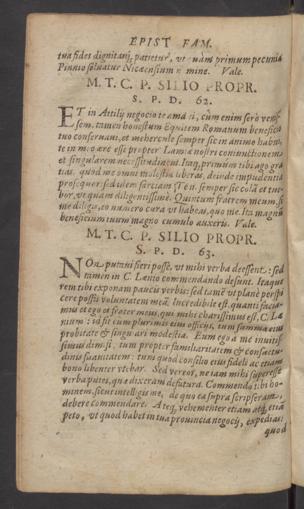 EPIST FAM.
tua fides dignitasq; patietur, vt quàm primum pecunia
Pinnio soluatur Nicæensium nomine. Vale.
M. T. C. P. SILIO PROPR.
S. P. D. 62.
ET in Attilij negocio te amaui, cùm enim serò venis-
sem, tamen honestum Equitem Romanum beneficio
tuo conseruaui, et mehercule semper sic in animo habui,
te in meo ære esse propter Lamiæ nostri coniunctionem
et singularem necessitudinem. Itaq; primùm tibi ago gra
tias, quòd me omni molestia liberas, deinde impudentia
prosequor: sed idem sarciam. Te n. semper sic colā et tue-
bor, vt quam diligentissimè. Quintum fratrem meum, si
me diligis, eo numero cura vt habeas, quo me. Ita magnū
beneficium tuum magno cumulo auxeris. Vale.
M. T. C. P. SILIO PROPR.
S. P. D. 63.
NOn putaui fieri posse, vt mihi verba deessent: sed
tamen in C. Lænio commendando desunt. Itaque
rem tibi exponam paucis verbis: sed tamē vt planè perspi
cere possis voluntatem meā. Incredibile est, quanti facia-
mus et ego et frater meus, qui mihi charissimus est, C. Læ
nium: id fit cum plurimis eius officijs, tum summa eius
probitate & singulari modestia. Eum ego à me inuitis-
simus dimisi, tum propter familiaritatem & consuetu-
dinis suauitatem: tum quòd consilio eius fideli ac etiam
bono libenter vtebar. Sed vereor, ne iam mihi superesse
verba putes, quæ dixeram defutura. Commendo tibi ho-
minem, sicut intelligis me, de quo ea supra scripserim,
debere commendare. Ateq; vehementer etiam atq; etiā
peto, vt quod habet in tua prouincia negocij, expedias:
quod